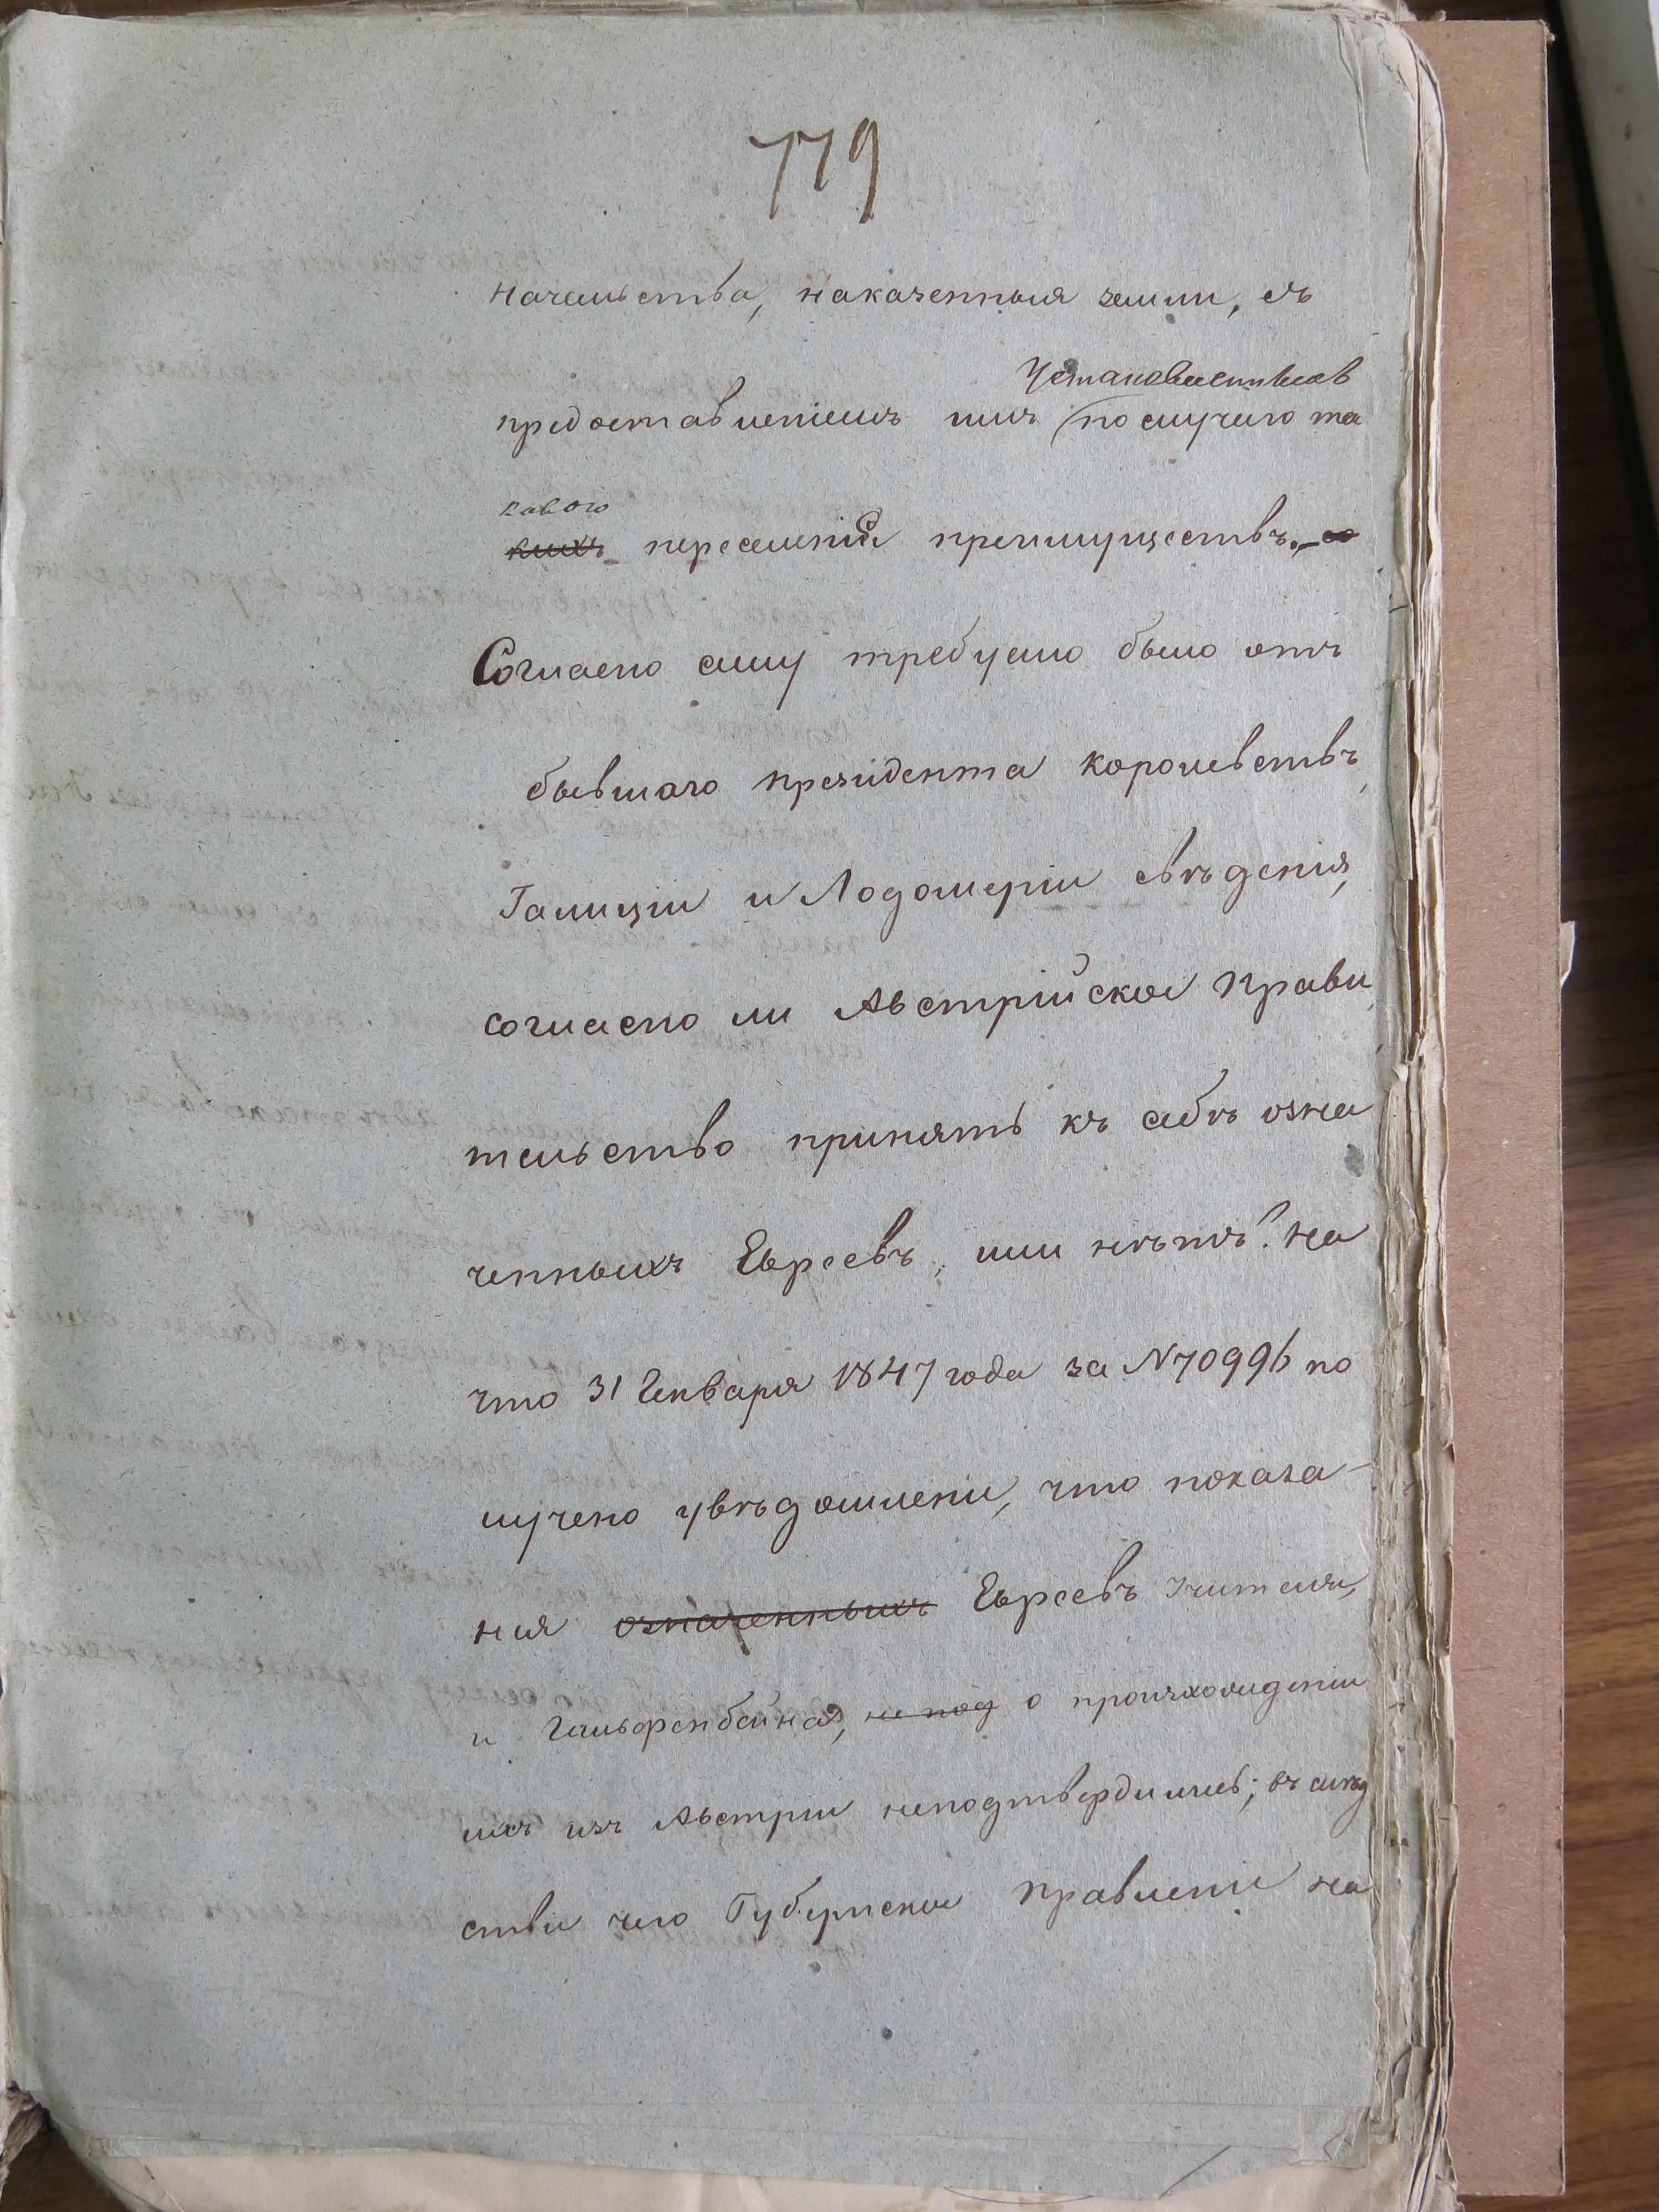 779
начальства, наказенныя земли, съ
Установленныхъ
предоставленіемъ имъ по случаю та
коваго
кихъ переселенія преимуществъ.
Согласно сему требуемо было отъ
бывшаго президента королевствъ
Галиціи и Лодомеріи свѣденія,
согласно ли Австрійское Прави
тельство принять къ себѣ озна
ченныхъ Евреевъ, или нѣтъ? На
что 31 Генваря 1847 года за N 70996 по
лучено увѣдомленіе, что показа-
нія означенныхъ Евреевъ
и Гельфенбейна, не под о происхожденіи
ихъ изъ Австріи неподтвердились; въ слѣд
ствіе чего Губернское Правленіе на